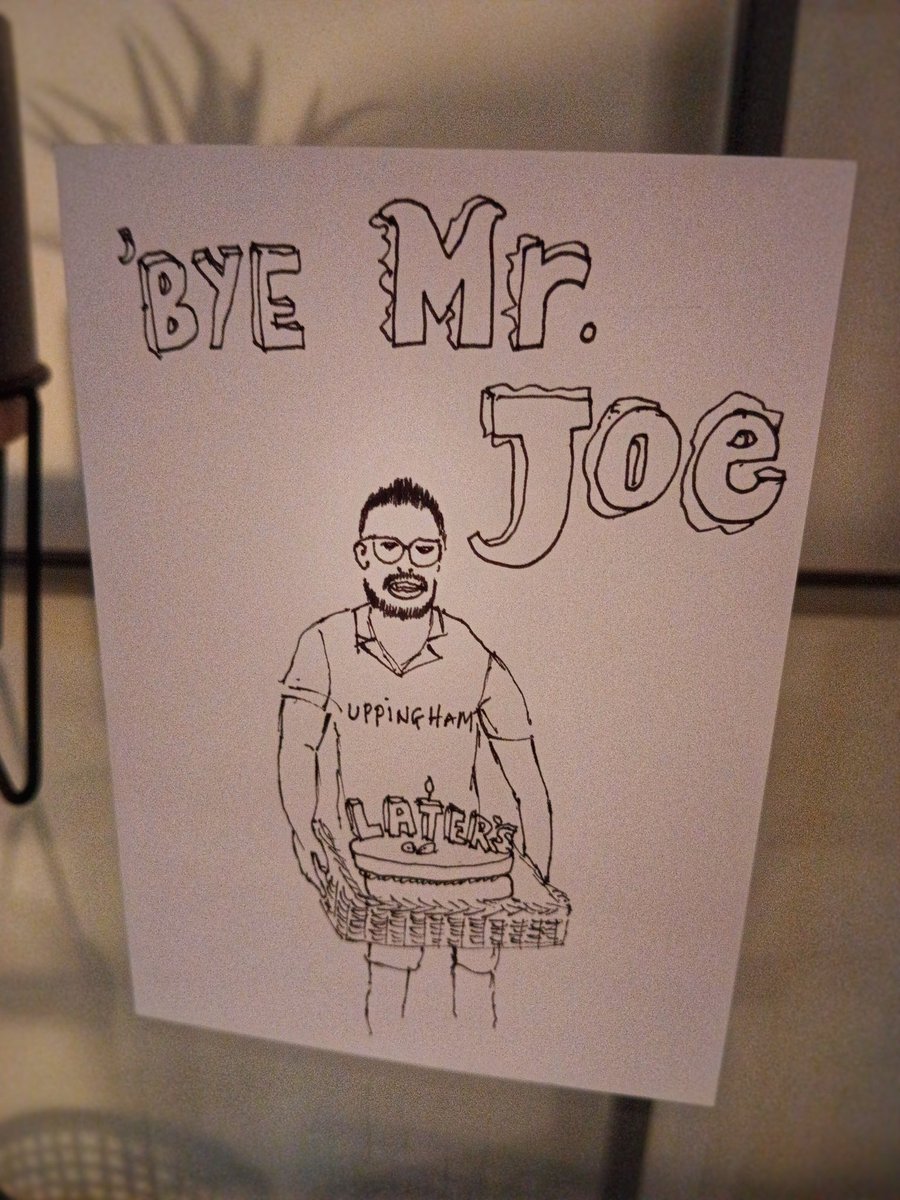 'BYE Mr.
Joe
UPPINGHAM
LATER'S